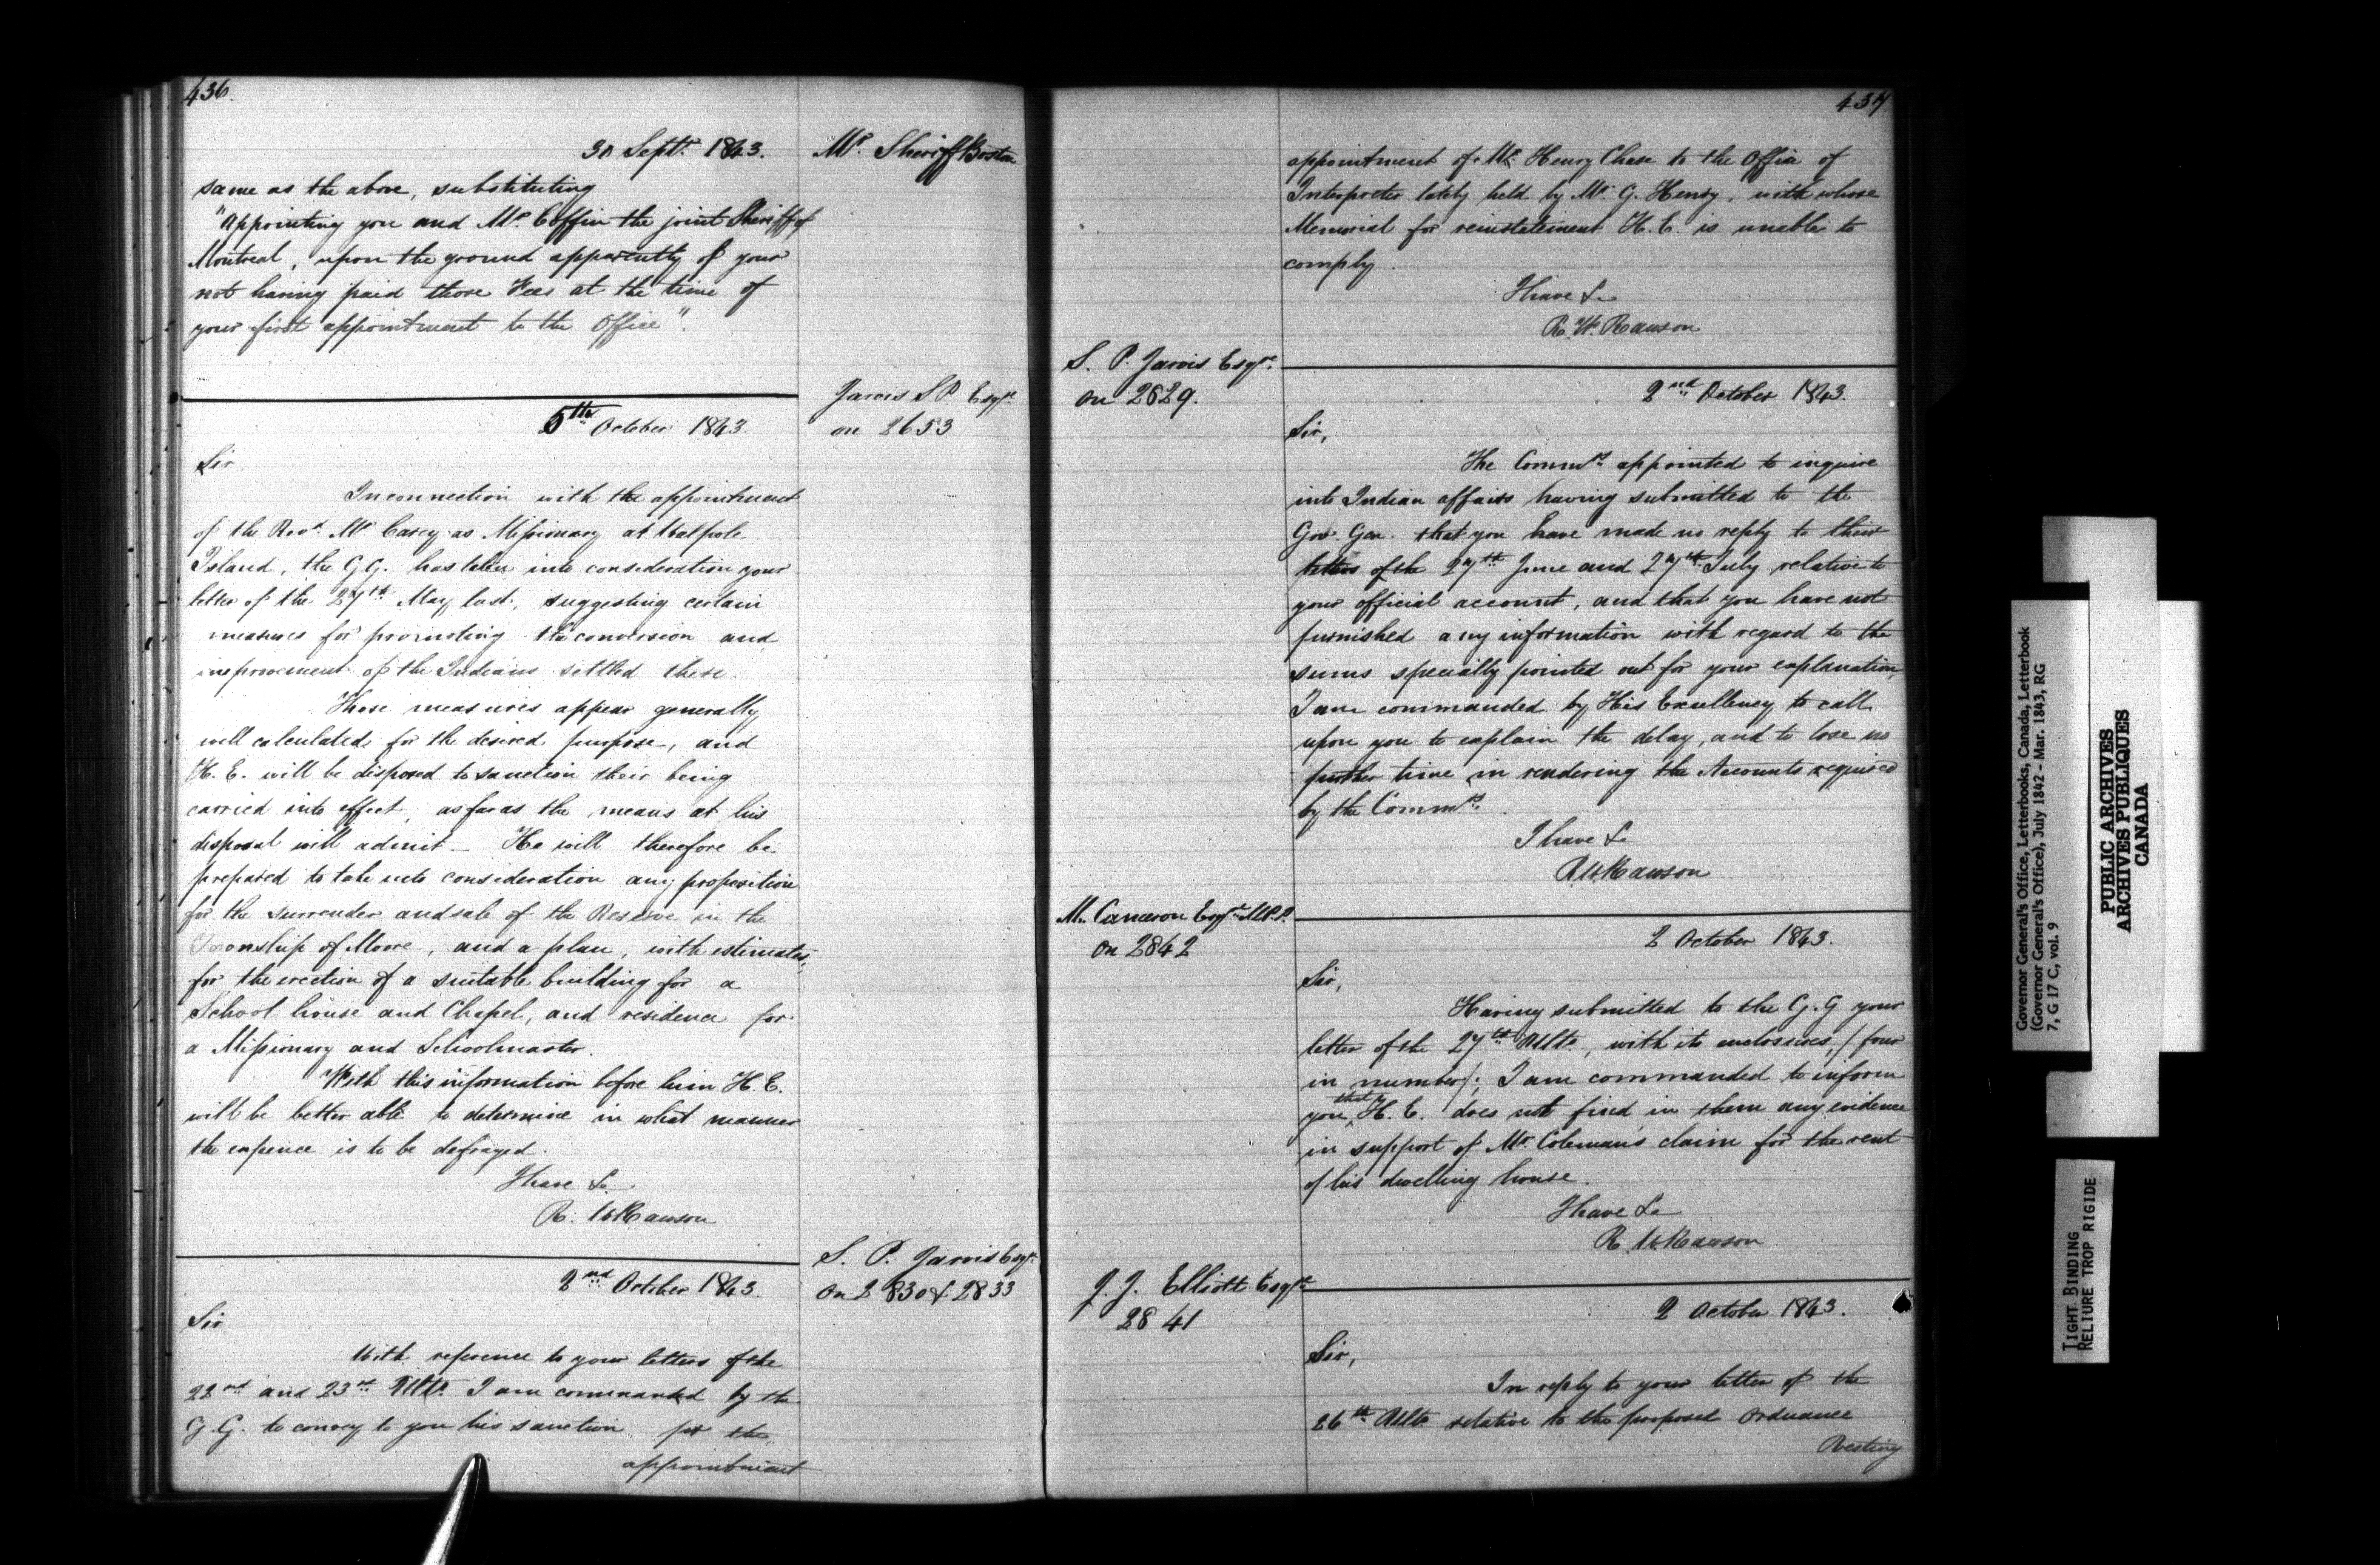 436.
30 Septr. 1843.
Mr. Sheriff Boston
same as the above, substituting
"Appointing you and Mr. Coffin the joint Sheriff of
Montreal, upon the ground apparently of your
not having paid those Fees at the time of
your first appointment to the Office".
Jarvis S P Esqre.
on 2653
5th October 1843.
Sir
In connection with the appointment
of the Revd. Mr Carey as Missionary at Walpole
Island, the G.G. has taken into consideration your
letter of the 27th May last, suggesting certain
measures for promoting the conversion and
improvement of the Indians settled there.
Those measures appear generally
well calculated for the desired purpose, and
H. E. will be disposed to sanction their being
carried into effect, as far as the means at his
disposal will admit _ He will therefore be
prepared to take into consideration any proposition
for the surrender and sale of the Reserve in the
Township of Moore, and a plan, with estimates,
for the erection of a suitable building for a
School house and Chapel, and residence for
a Missionary and Schoolmaster.
With this information before him H. E.
will be better able to determine in what manner
the expence is to be defrayed.
I have &c
R. W. Rawson
S. P. Jarvis Esqre.
on 2830 & 2833
2nd October 1843.
Sir
With reference to your letters of the
22nd and 23rd Ulto. I am commanded by the
G. G. to convey to you his sanction for the
appointment
437.
appointment of Mr. Henry Chase to the Office of
Interpreter lately held by Mr. G. Henry, with whose
Memorial for reinstatement H. E. is unable to
comply.
I have &c
R. W. Rawson
S. P. Jarvis Esqre.
on 2829.
2nd October 1843.
Sir,
The Commrs. appointed to inquire
into Indian affairs having submitted to the
Gov. Gen. that you have made no reply to their
letters of the 27th June and 27th July relative to
your official account, and that you have not
furnished any information with regard to the
sums specially pointed out for your explanation,
I am commanded by His Excellency to call
upon you to explain the delay, and to lose no
further time in rendering the Accounts required
by the Commrs.
I have &c
R W Rawson
M. Cameron Esqre. M.P.P.
on 2842
2 October 1843.
Sir,
Having submitted to the G.G your
letter of the 27th Ulto., with its enclosures, /four
in number/; I am commanded to inform
you that H. E. does not find in them any evidence
in support of Mr. Coleman's claim for the rent
of his dwelling house.
I have &c
R. W. Rawson
J. J. Elliott Esqre
2841
2 October 1843.
Sir,
In reply to your letter of the
26th Ulto relative to the proposed Ordnance
Vesting
Governor General's Office, Letterbooks, Canada, Letterbook
(Governor General's Office), July 1842 - Mar. 1843, RG
7, G 17 C, vol. 9
PUBLIC ARCHIVES
ARCHIVES PUBLIQUES
CANADA
TIGHT BINDING
RELIURE TROP RIGIDE